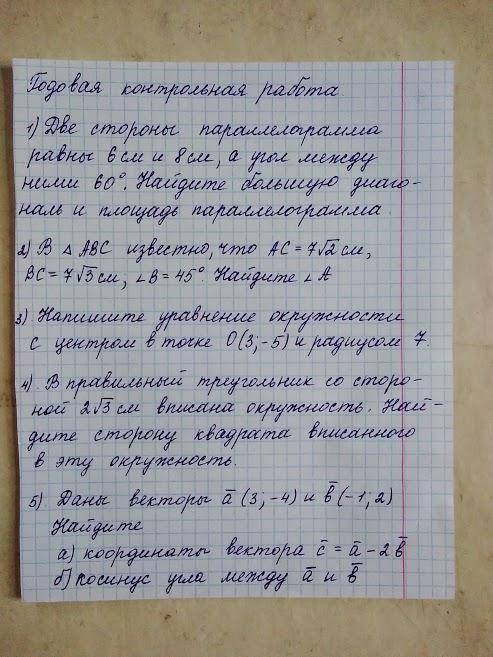 Годовая контрольная работа
1) Две стороны параллелограмма
равны 6 см и 8 см, а угол между
ними 60°. Найдите большую диаго-
наль и площадь параллелограмма.
2) В △ ABC известно, что AC = 7√2 см,
BC = 7√3 см, ∠B = 45°. Найдите ∠A
3) Напишите уравнение окружности
с центром в точке O(3; -5) и радиусом 7.
4) В правильный треугольник со сторо-
ной 2√3 см вписана окружность. Най-
дите сторону квадрата вписанного
в эту окружность.
5) Даны векторы a̅ (3; -4) и b̅ (-1; 2)
Найдите
а) координаты вектора c̅ = a̅ - 2b̅
б) косинус угла между a̅ и b̅